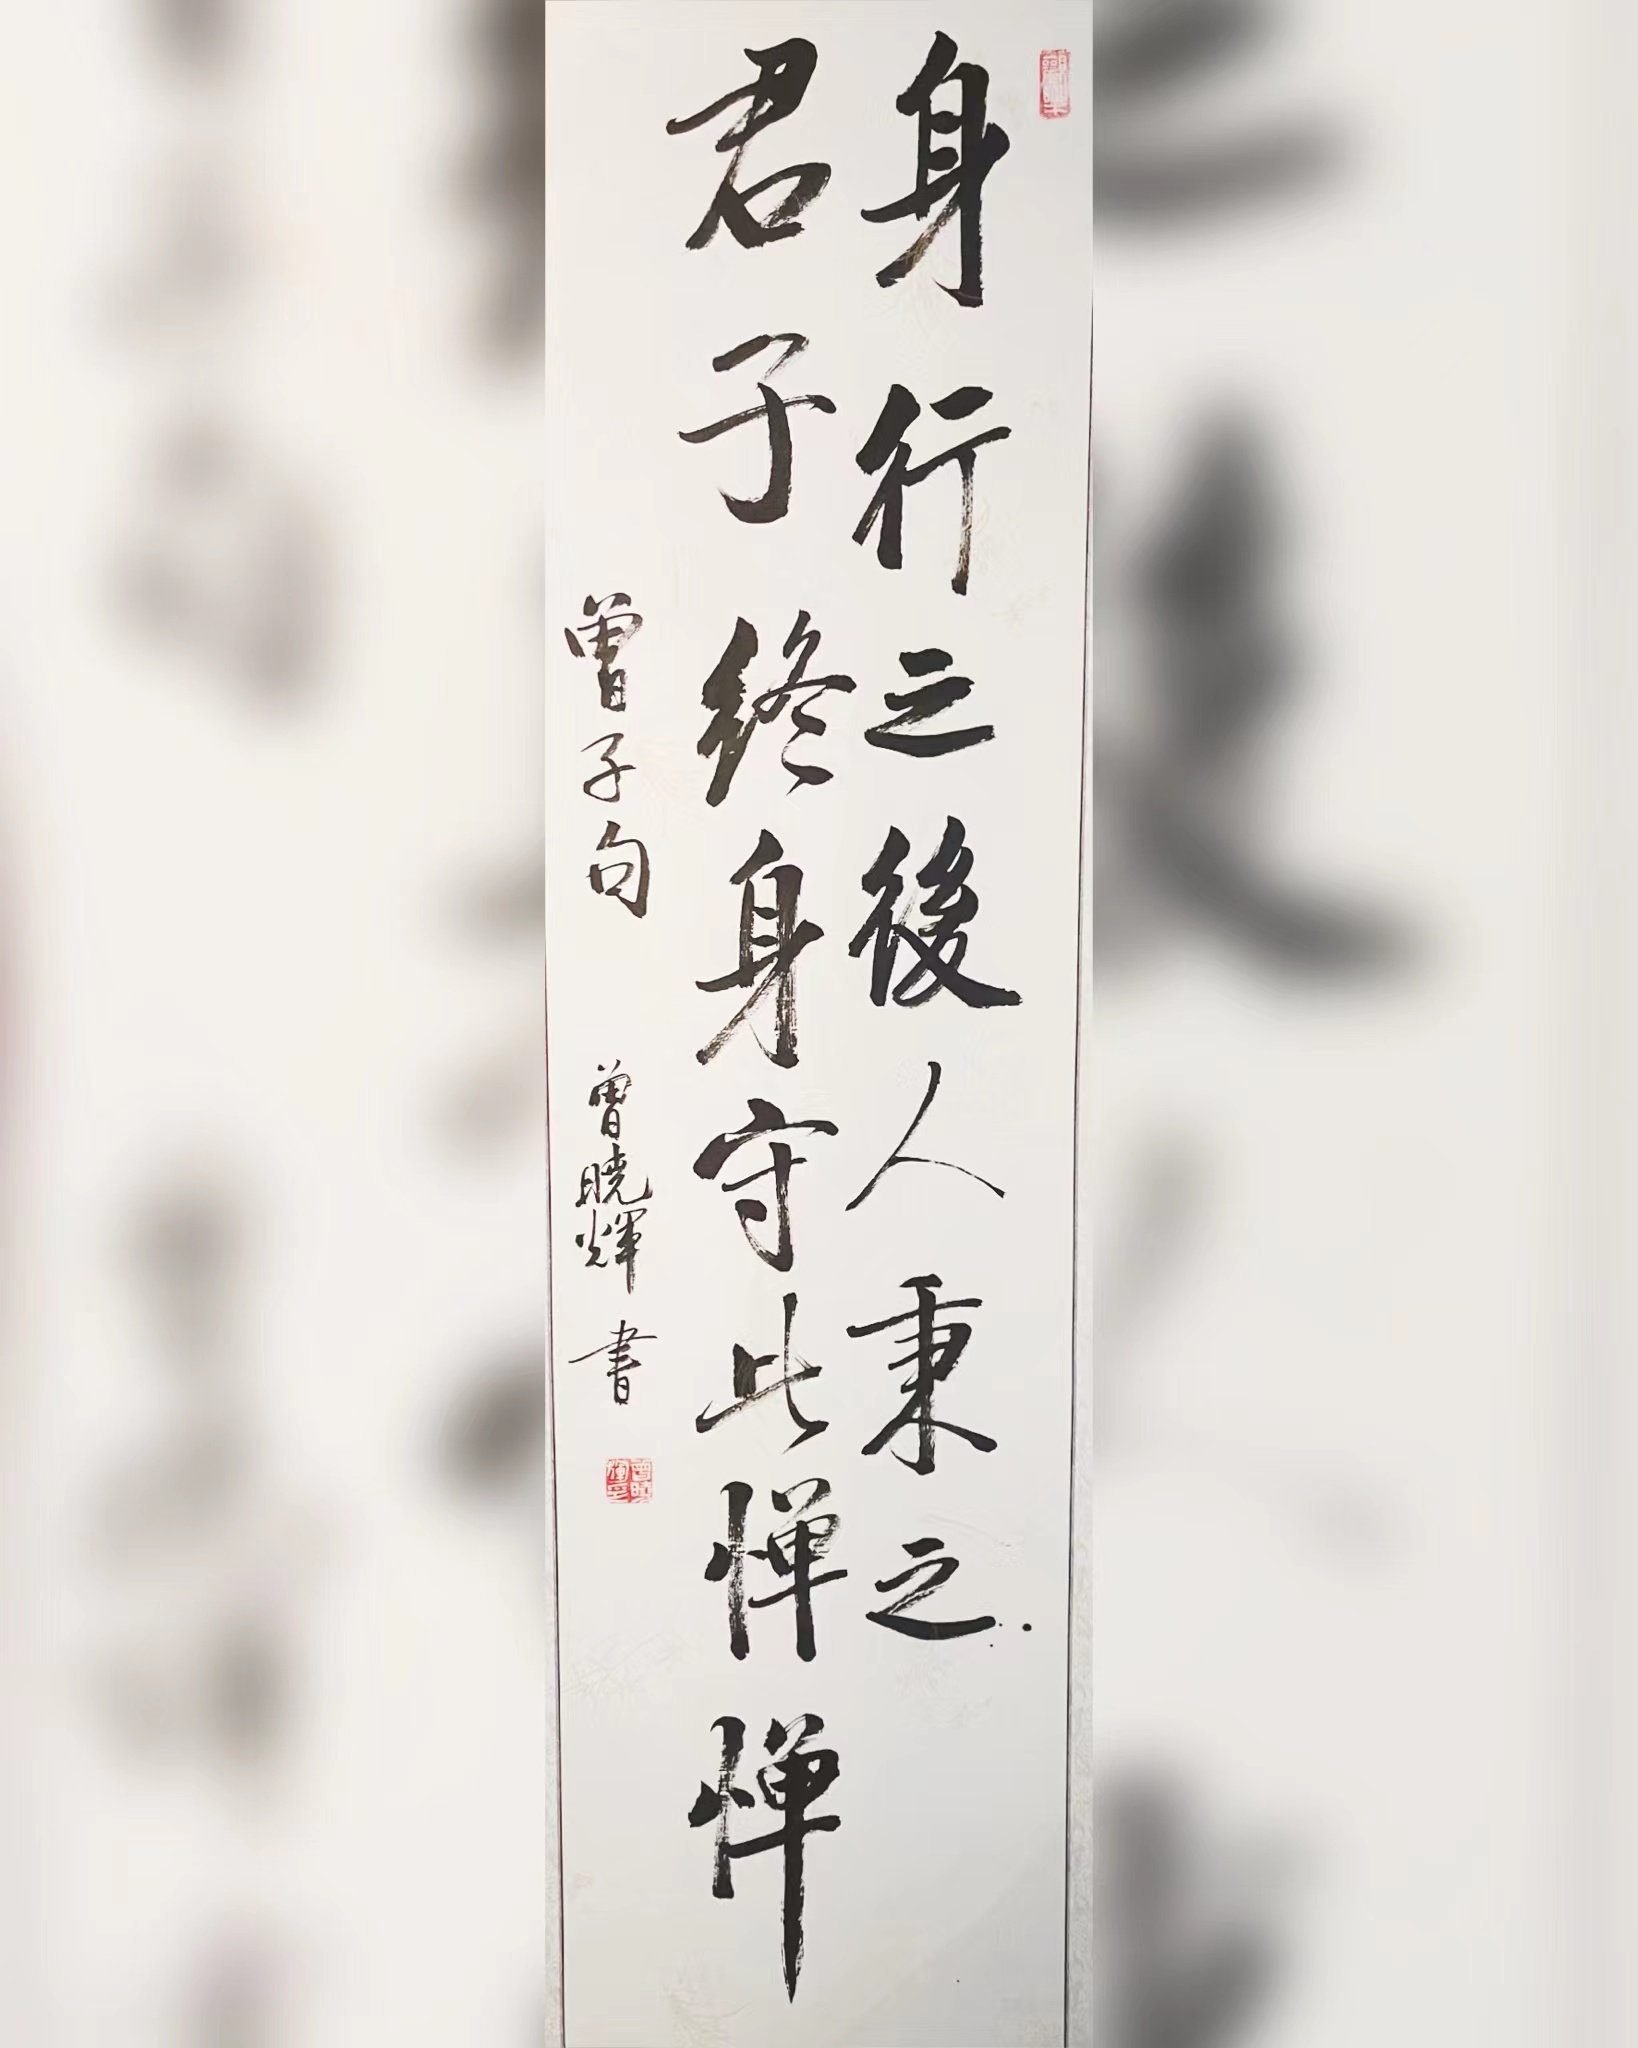 身行之後人秉之
君子終身守此惮惮
曾子句
曾曉輝書